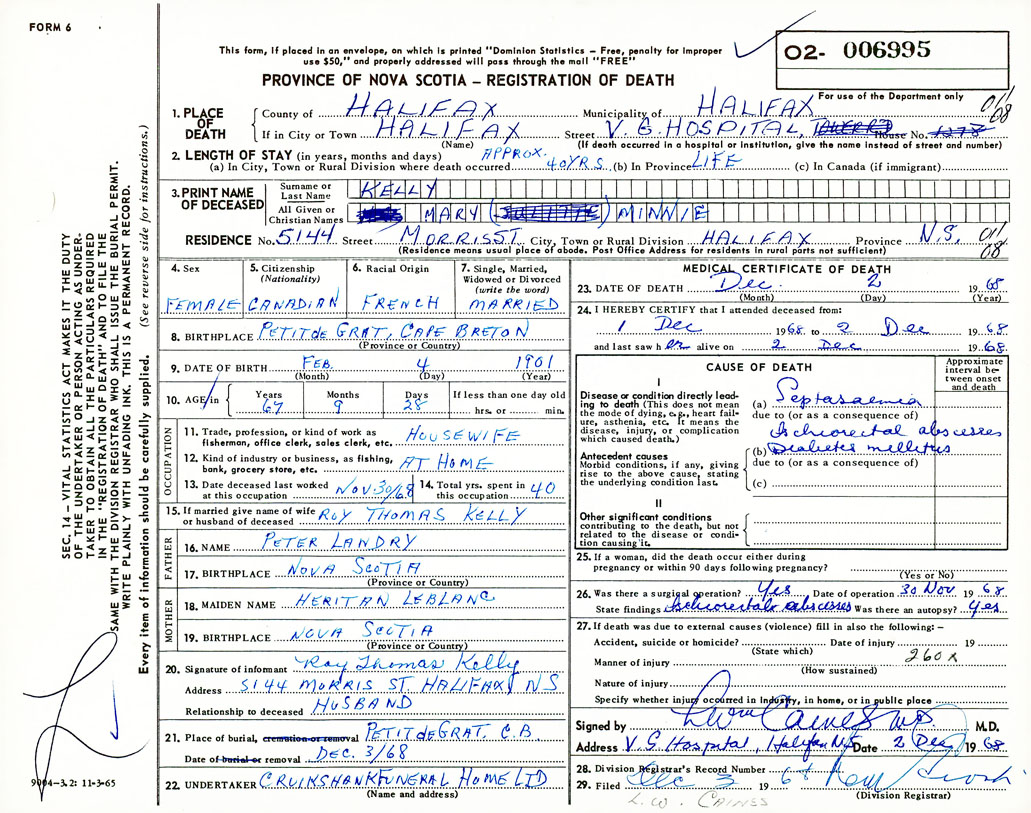 FORM 6
This form, if placed in an envelope, on which is printed "Dominion Statistics – Free, penalty for improper
use $50," and properly addressed will pass through the mail "FREE"
O2- 006995
PROVINCE OF NOVA SCOTIA – REGISTRATION OF DEATH
For use of the Department only
011
08
1. PLACE OF DEATH
County of HALIFAX Municipality of HALIFAX
If in City or Town HALIFAX Street V. G. HOSPITAL, House No.
(Name) (If death occurred in a hospital or institution, give the name instead of street and number)
2. LENGTH OF STAY (in years, months and days) APPROX.
(a) In City, Town or Rural Division where death occurred 40 YRS. (b) In Province LIFE (c) In Canada (if immigrant)
3. PRINT NAME OF DECEASED
Surname or Last Name KELLY
All Given or Christian Names MARY MINNIE
RESIDENCE No. 5144 Street MORRIS ST. City, Town or Rural Division HALIFAX Province N.S.
(Residence means usual place of abode. Post Office Address for residents in rural parts not sufficient)
011
08
4. Sex
FEMALE
5. Citizenship
(Nationality)
CANADIAN
6. Racial Origin
FRENCH
7. Single, Married,
Widowed or Divorced
(write the word)
MARRIED
8. BIRTHPLACE PETIT de GRAT, CAPE BRETON
(Province or Country)
9. DATE OF BIRTH FEB. 4 1901
(Month) (Day) (Year)
10. AGE in
Years Months Days If less than one day old
67 9 28 hrs. or min.
OCCUPATION
11. Trade, profession, or kind of work as
fisherman, office clerk, sales clerk, etc. HOUSEWIFE
12. Kind of industry or business, as fishing,
bank, grocery store, etc. AT HOME
13. Date deceased last worked
at this occupation NOV-30/68
14. Total yrs. spent in
this occupation 40
15. If married give name of wife
or husband of deceased ROY THOMAS KELLY
FATHER
16. NAME PETER LANDRY
17. BIRTHPLACE NOVA SCOTIA
(Province or Country)
MOTHER
18. MAIDEN NAME HERITAN LEBLANC
19. BIRTHPLACE NOVA SCOTIA
(Province or Country)
20. Signature of informant Roy Thomas Kelly
Address 5144 MORRIS ST. HALIFAX, NS
Relationship to deceased HUSBAND
21. Place of burial, cremation or removal PETIT de GRAT. C.B.
Date of burial or removal DEC. 3/68
22. UNDERTAKER CRUIKSHANK FUNERAL HOME LTD
(Name and address)
MEDICAL CERTIFICATE OF DEATH
23. DATE OF DEATH Dec. 2 1968
(Month) (Day) (Year)
24. I HEREBY CERTIFY that I attended deceased from:
1 Dec 1968 to 2 Dec 1968
and last saw h er alive on 2 Dec 1968
CAUSE OF DEATH
Approximate
interval be-
tween onset
and death
I
Disease or condition directly lead-
ing to death (This does not mean
the mode of dying, e.g., heart fail-
ure, asthenia, etc. It means the
disease, injury, or complication
which caused death.)
(a) Septasaemia
due to (or as a consequence of)
Ischiorectal abscesses
Antecedent causes
Morbid conditions, if any, giving
rise to the above cause, stating
the underlying condition last.
(b) Diabetes mellitus
due to (or as a consequence of)
(c)
II
Other significant conditions
contributing to the death, but not
related to the disease or condi-
tion causing it.
25. If a woman, did the death occur either during
pregnancy or within 90 days following pregnancy?
(Yes or No)
26. Was there a surgical operation? Yes Date of operation 30 Nov. 1968
State findings Ischiorectal abscesses Was there an autopsy? Yes
27. If death was due to external causes (violence) fill in also the following: –
Accident, suicide or homicide? Date of injury 19
(State which)
260X
Manner of injury
(How sustained)
Nature of injury
Specify whether injury occurred in Industry, in home, or in public place
Signed by M.D.
Address V. G. Hospital, Halifax N.S. Date 2 Dec 1968
28. Division Registrar's Record Number
29. Filed Dec 3 196
(Division Registrar)
L. W. CAINES
SEC. 14 – VITAL STATISTICS ACT MAKES IT THE DUTY
OF THE UNDERTAKER OR PERSON ACTING AS UNDER-
TAKER TO OBTAIN ALL THE PARTICULARS REQUIRED
IN THE "REGISTRATION OF DEATH" AND TO FILE THE
SAME WITH THE DIVISION REGISTRAR WHO SHALL ISSUE THE BURIAL PERMIT.
WRITE PLAINLY WITH UNFADING INK. THIS IS A PERMANENT RECORD.
Every item of information should be carefully supplied. (See reverse side for instructions.)
9004–3.2: 11-3-65